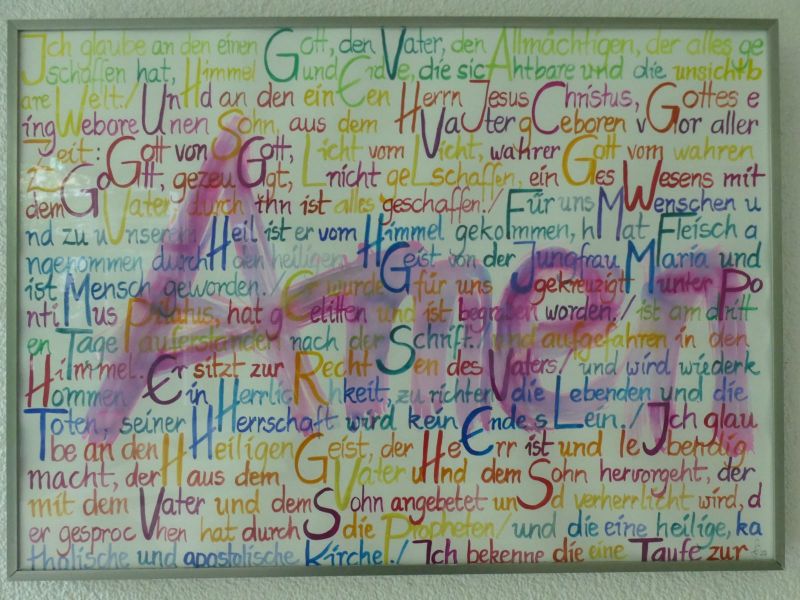 Ich glaube an den einen Gott, den Vater, den Allmächtigen, der alles ge
schaffen hat, Himmel und Erde, die sichtbare und die unsichtb
are Welt./ Und an den einen Herrn Jesus Christus, Gottes e
ingeborenen Sohn, aus dem Vater geboren vor aller
Zeit: Gott von Gott, Licht vom Licht, wahrer Gott vom wahren
Gott, gezeugt, nicht geschaffen, eines Wesens mit
dem Vater durch ihn ist alles geschaffen./ Für uns Menschen u
nd zu unserem Heil ist er vom Himmel gekommen, hat Fleisch a
ngenommen durch den heiligen Geist von der Jungfrau Maria und
ist Mensch geworden./ Er wurde für uns gekreuzigt unter Po
ntius Pilatus, hat gelitten und ist begraben worden./ ist am dritt
en Tage auferstanden nach der Schrift./ und aufgefahren in den
Himmel. Er sitzt zur Rechten des Vaters/ und wird wiederk
ommen in Herrlichkeit, zu richten die Lebenden und die
Toten, seiner Herrschaft wird kein Ende sein./ Ich glau
be an den Heiligen Geist, der Herr ist und lebendig
macht, der aus dem Vater und dem Sohn hervorgeht, der
mit dem Vater und dem Sohn angebetet und verherrlicht wird, d
er gesprochen hat durch die Propheten/ und die eine heilige, ka
tholische und apostolische Kirche./ Ich bekenne die eine Taufe zur
Amen